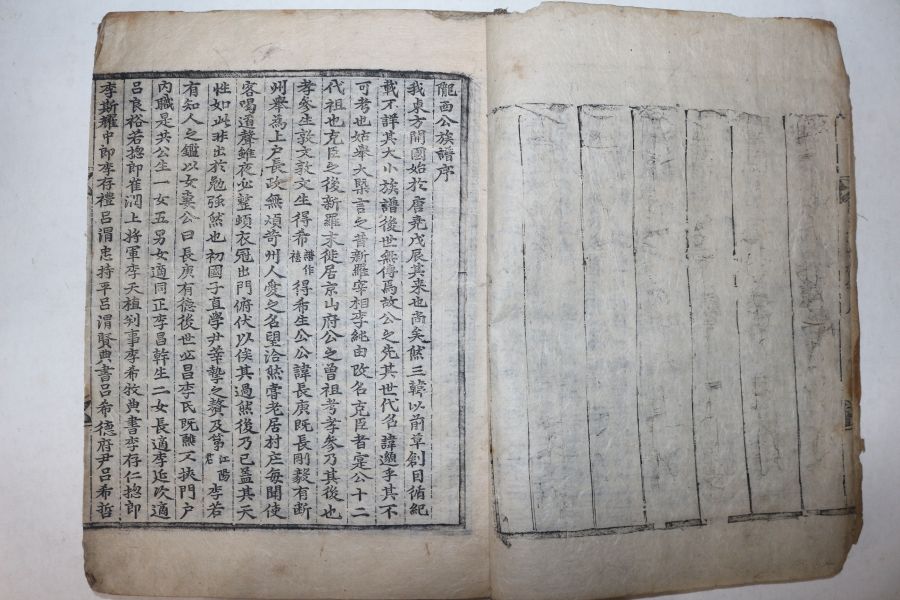 隴西公族譜序
我東方開國始於唐堯戊辰其來也尚矣然三韓以前草創因循紀
載不詳其大小族譜後世無傳焉故公之先其世代名諱邈乎其不
可考也姑舉大槩言之昔新羅宰相李純由改名克臣者寔公十二
代祖也克臣之後新羅末徙居京山府公之曾祖考孝參乃其後也
孝參生敦文敦文生得希譜作禧得希生公公諱長庚既長剛毅有斷
州舉為上戶長政無煩苛州人愛之名望洽然嘗老居村庄每聞使
客喝道聲雖夜必整頓衣冠出門俯伏以俟其過然後乃已蓋其天
性如此非出於勉强然也初國子直學尹華摯之贅及第江陽君李若
有知人之鑑以女妻公曰長庚有德後世必昌李氏既離又挾門戶
內職是共公生一女五男女適同正李昌幹生二女長適李近次適
呂良裕若摠郎崔潤上將軍李天植判事李希牧典書李存仁摠郎
李斯䎱中郎李存禮呂渭忠持平呂渭賢典書呂希德府尹呂希哲